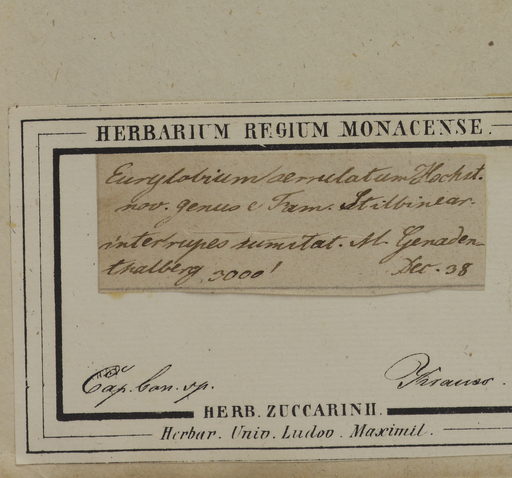 HERBARIUM REGIUM MONACENSE.
Eurylobium serrulatum Hochst.
nov. genus e Fam. Stilbinear.
inter rupes sumitat. M. Genaden-
thalberg, 3000'
Dec. 38
Cap. bon. sp.
Krauss.
HERB. ZUCCARINII.
Herbar. Univ. Ludov. Maximil.